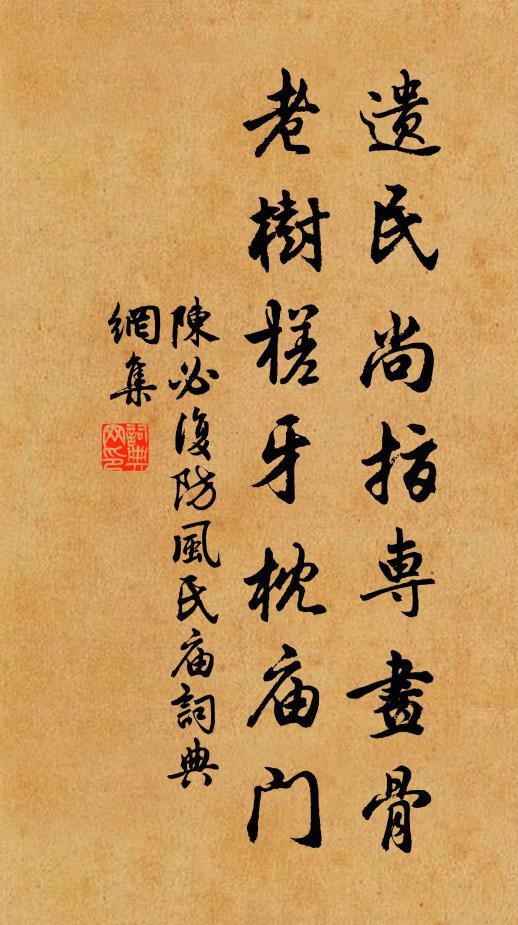 遗民尚指専畫骨
老樹槎牙枕庙门
陳必復防風氏庙詞典
網集
詞典
网印